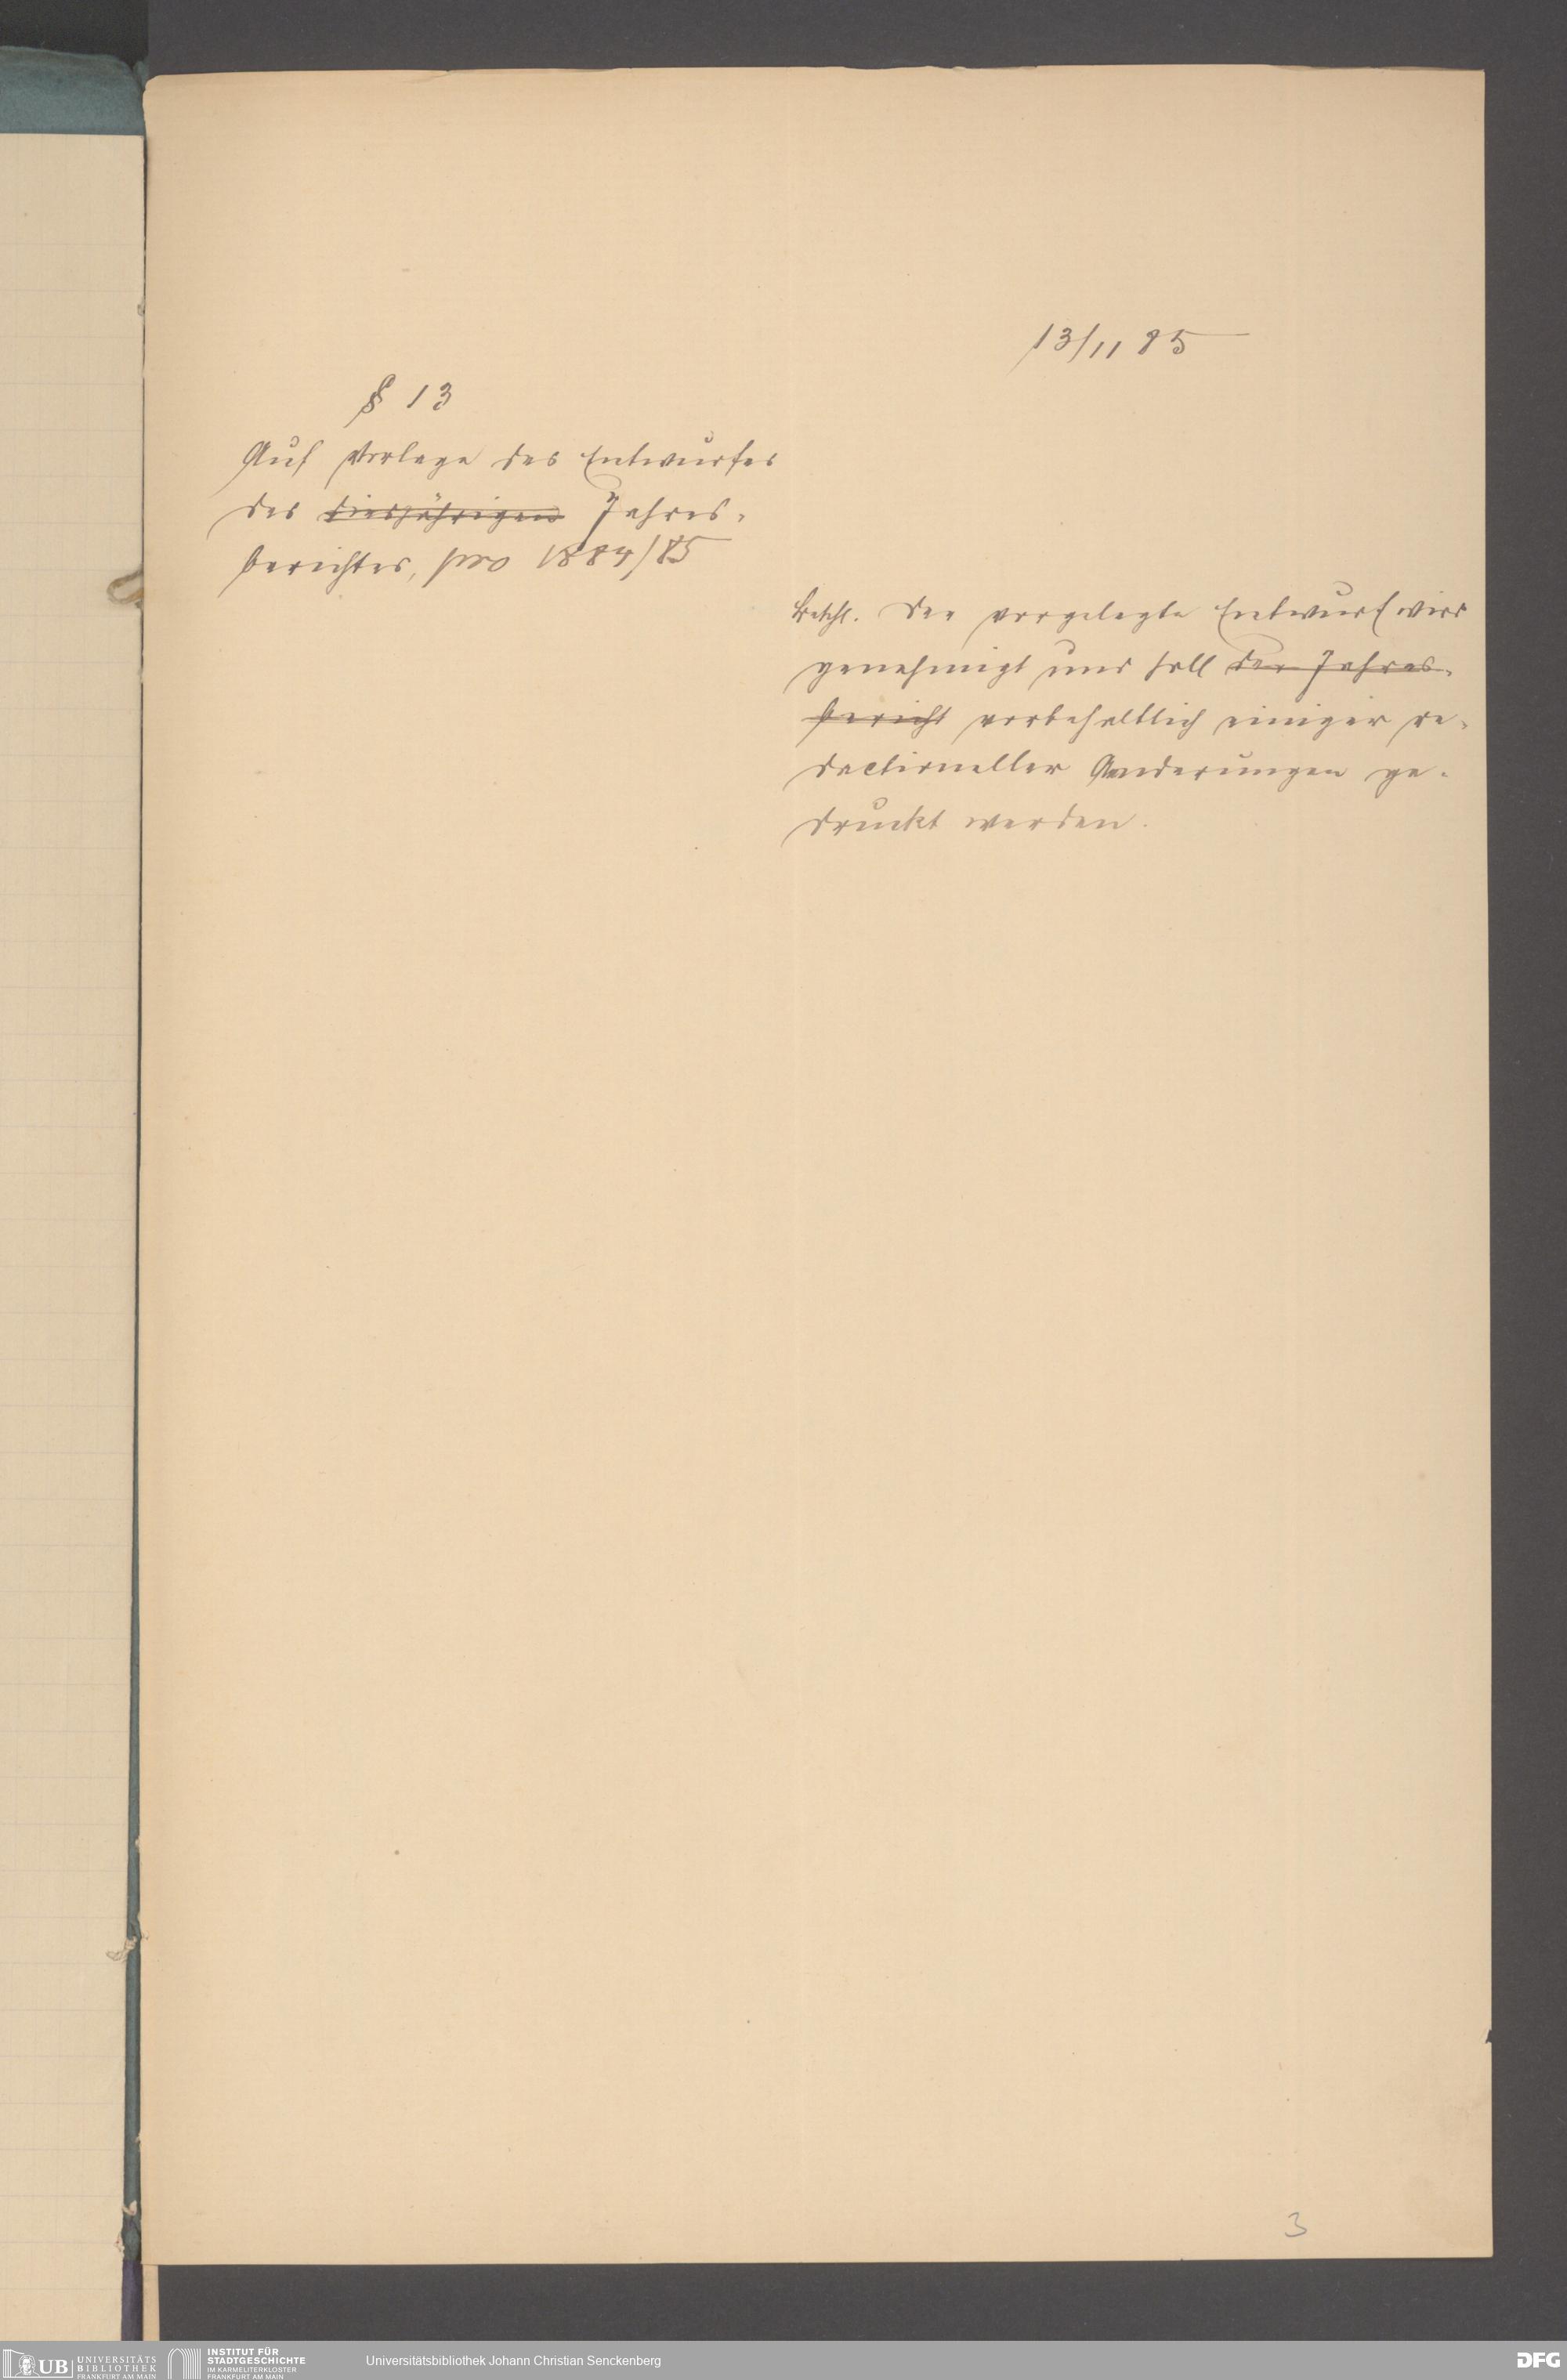 13/11 85
§ 13
Auf Vorlage des Entwurfes
des diesjährigen Jahres-
berichtes, pro 1884/85
Beschl. Der vorgelegte Entwurf wird
genehmigt und soll der Jahres-
bericht vorbehaltlich einiger re-
dactioneller Aenderungen ge-
druckt werden.
3
UB UNIVERSITÄTS
BIBLIOTHEK
FRANKFURT AM MAIN
INSTITUT FÜR
STADTGESCHICHTE
IM KARMELITERKLOSTER
FRANKFURT AM MAIN
Universitätsbibliothek Johann Christian Senckenberg
DFG